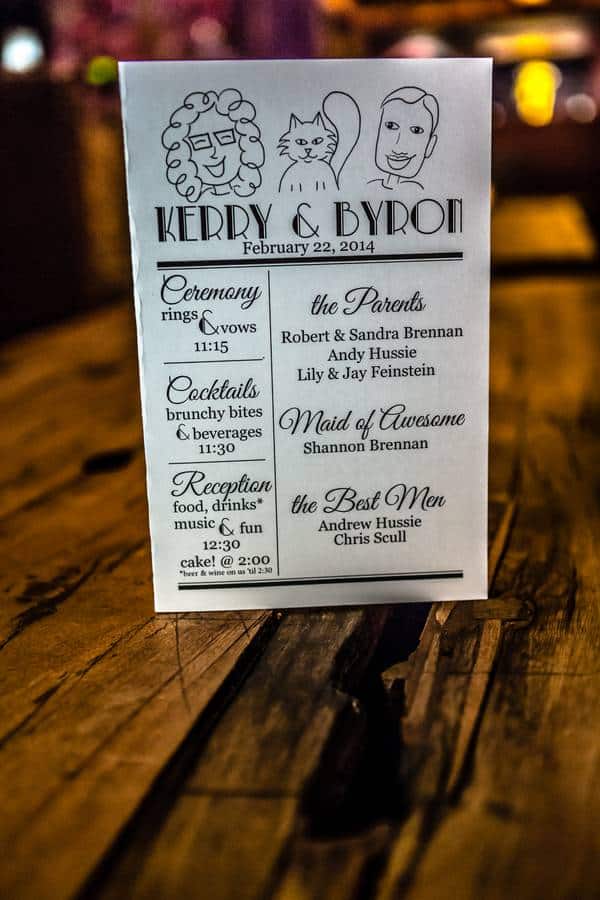 KERRY & BYRON
February 22, 2014
Ceremony
rings
& vows
11:15
Cocktails
brunchy bites
& beverages
11:30
Reception
food, drinks*
music & fun
12:30
cake! @ 2:00
*beer & wine on us 'til 2:30
the Parents
Robert & Sandra Brennan
Andy Hussie
Lily & Jay Feinstein
Maid of Awesome
Shannon Brennan
the Best Men
Andrew Hussie
Chris Scull